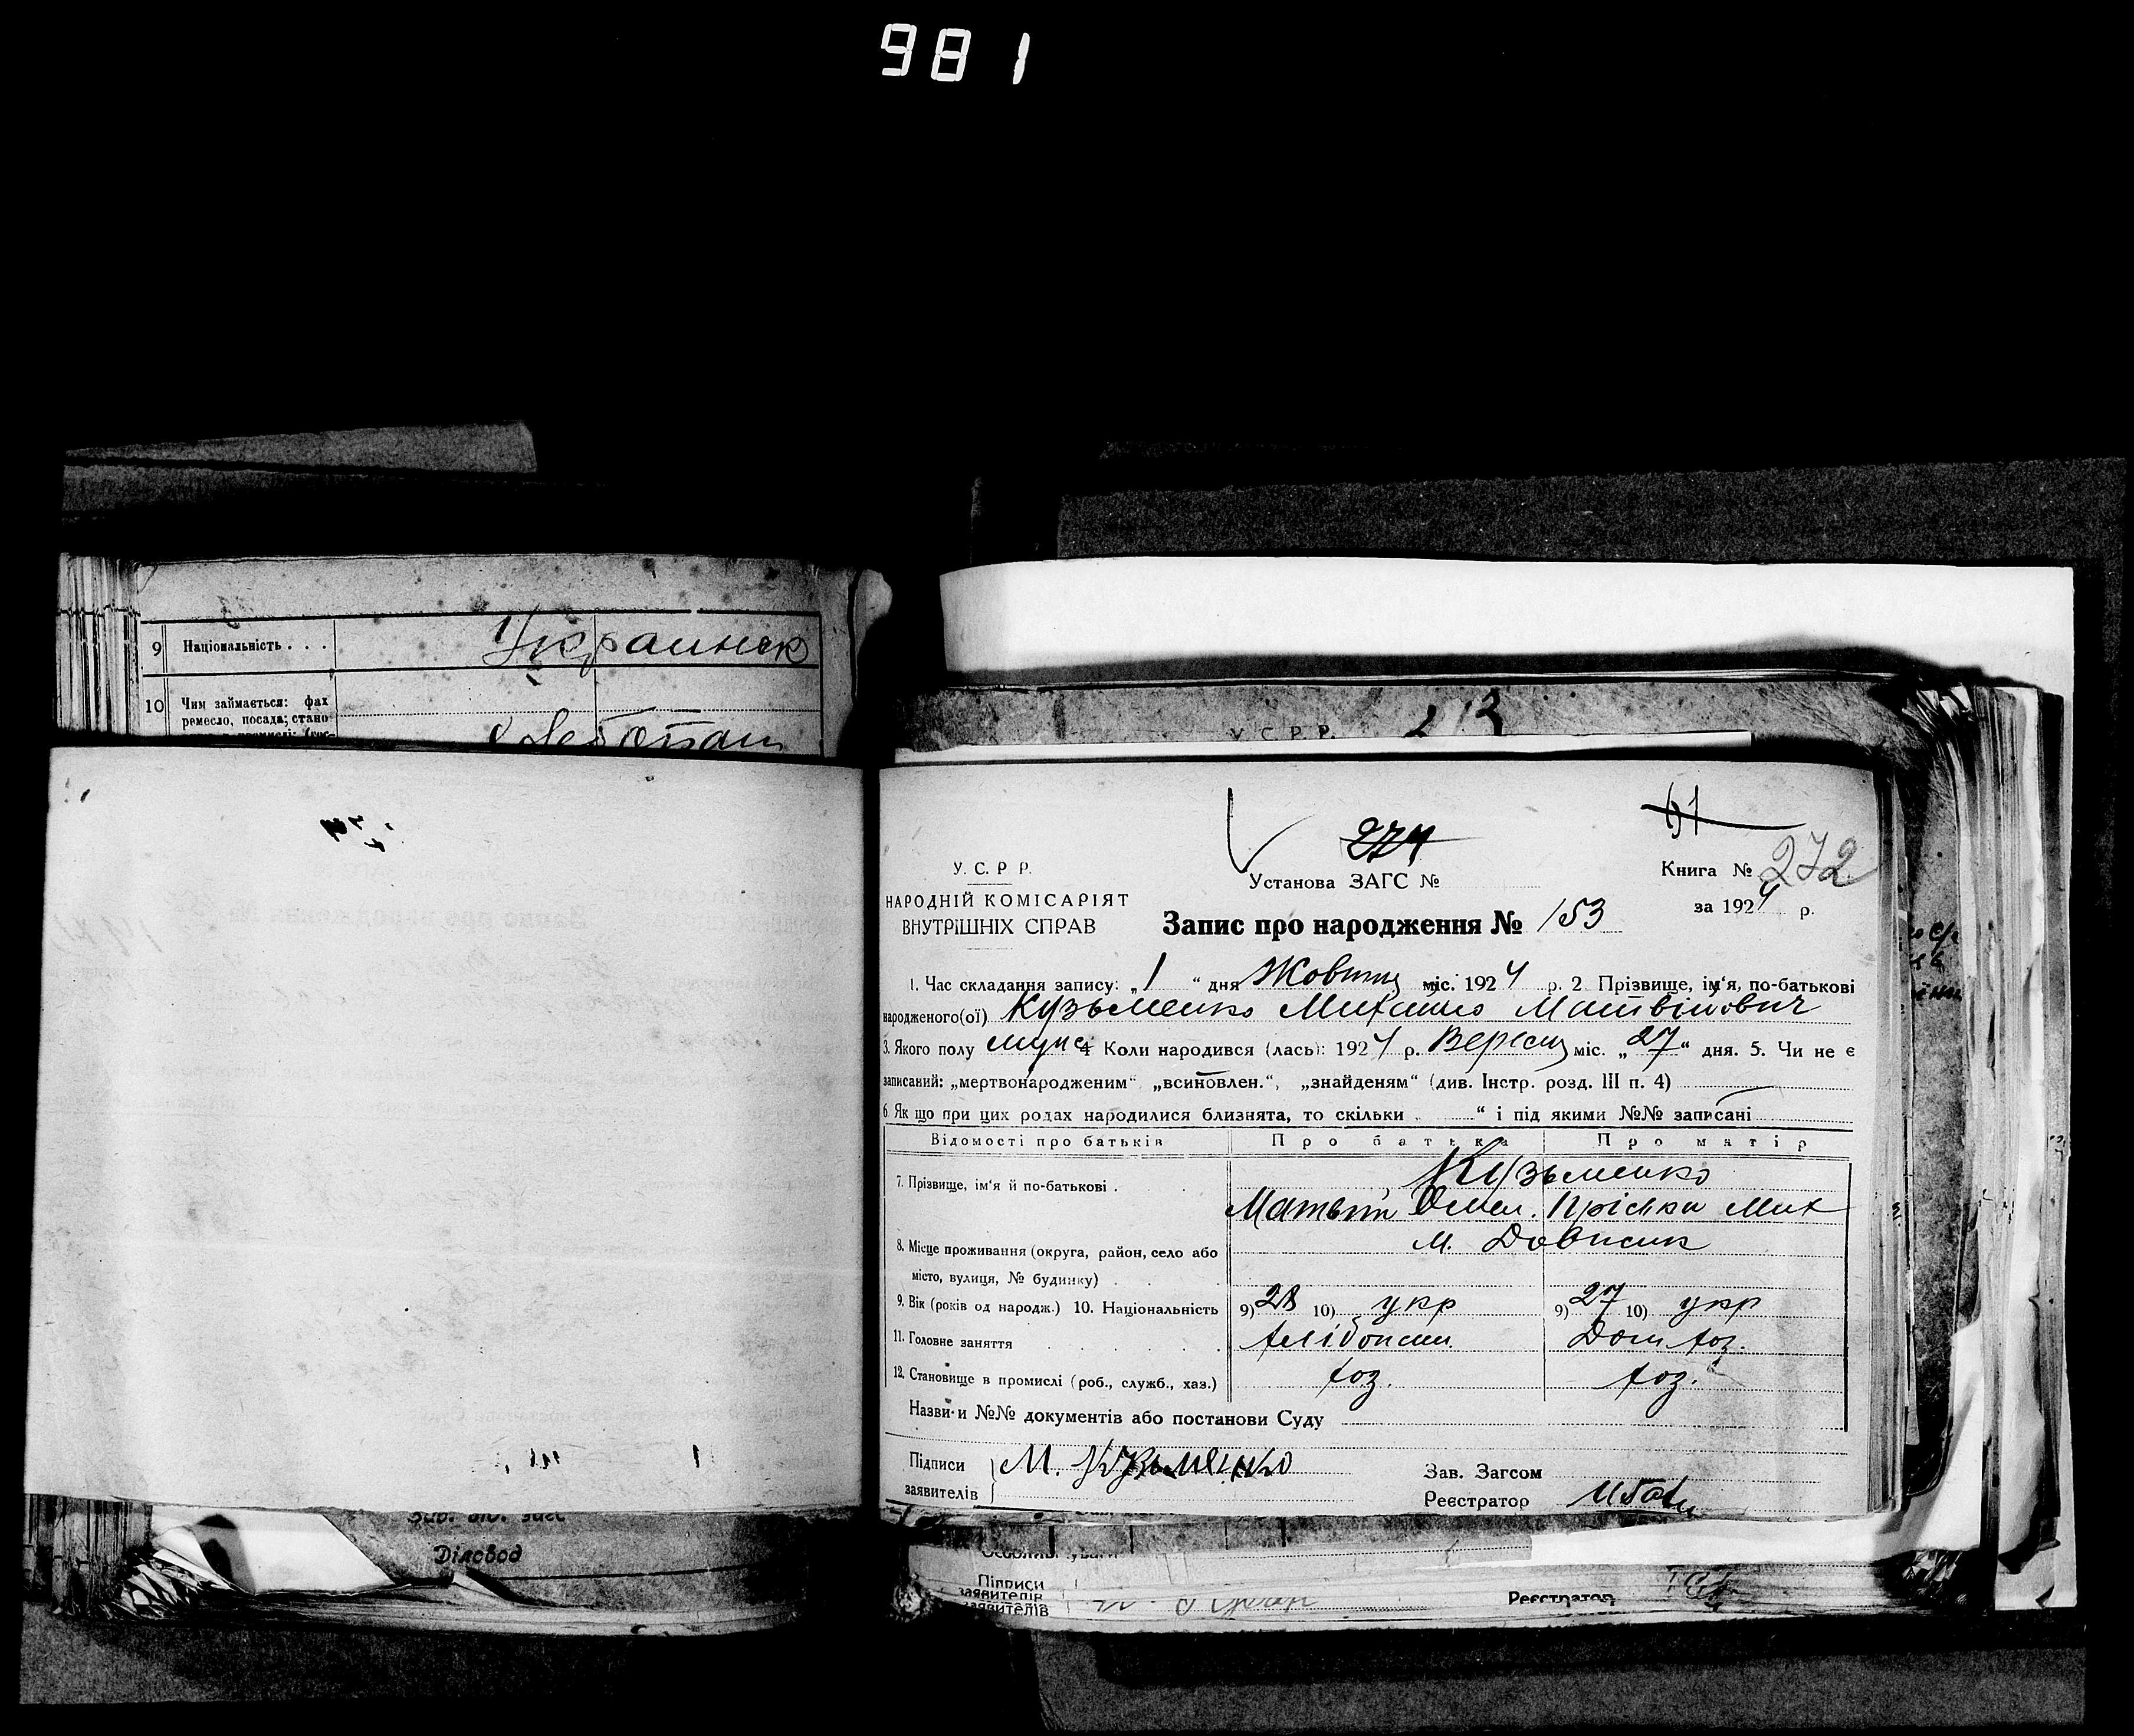 981
9 Національність . . . Украинск
10 Чим займається: фах
ремесло, посада; стано-
У. С. Р. Р.
274
Книга № 272
У. С. Р Р.
Установа ЗАГС №
НАРОДНІЙ КОМІСАРІЯТ
за 1924 р.
ВНУТРІШНІХ СПРАВ
Запис про народження № 153
1. Час складання запису: „1“ дня Жовтня міс. 1924 р. 2 Прізвище, ім‘я, по-батькові
народженого(ої) Кузьменко Михайло Матвійович
3. Якого полу муж 4 Коли народився (лась): 1924 р. Вересня міс. „27“ дня. 5. Чи не є
записаний: „мертвонародженим“ „всиновлен.“, „знайденям“ (див. Інстр. розд. III п. 4)
6. Як що при цих родах народилися близнята, то скільки „ “ і під якими №№ записані
Відомості про батьків Про батька Про матір
7. Прізвище, ім‘я й по-батькові . Кузьменко
Матвій Омел. Пріська Мих
8. Місце проживання (округа, район, село або м.
місто, вулиця, № будинку)
9. Вік (років од народж.) 10. Національність 9) 28 10) укр 9) 27 10) укр
11. Головне заняття хлібопаш. Дом хоз.
12. Становище в промислі (роб., служб., хаз.) хоз. хоз.
Назви и №№ документів або постанови Суду
Підписи М. Кузьменко
Зав. Загсом
заявителів
Реєстратор
Зав. від. загс
Діловод
Підписи
заявителів
заявителів
Реєстратор